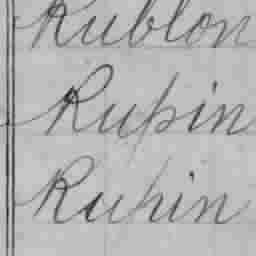 Rublon
Rupin
Rupin